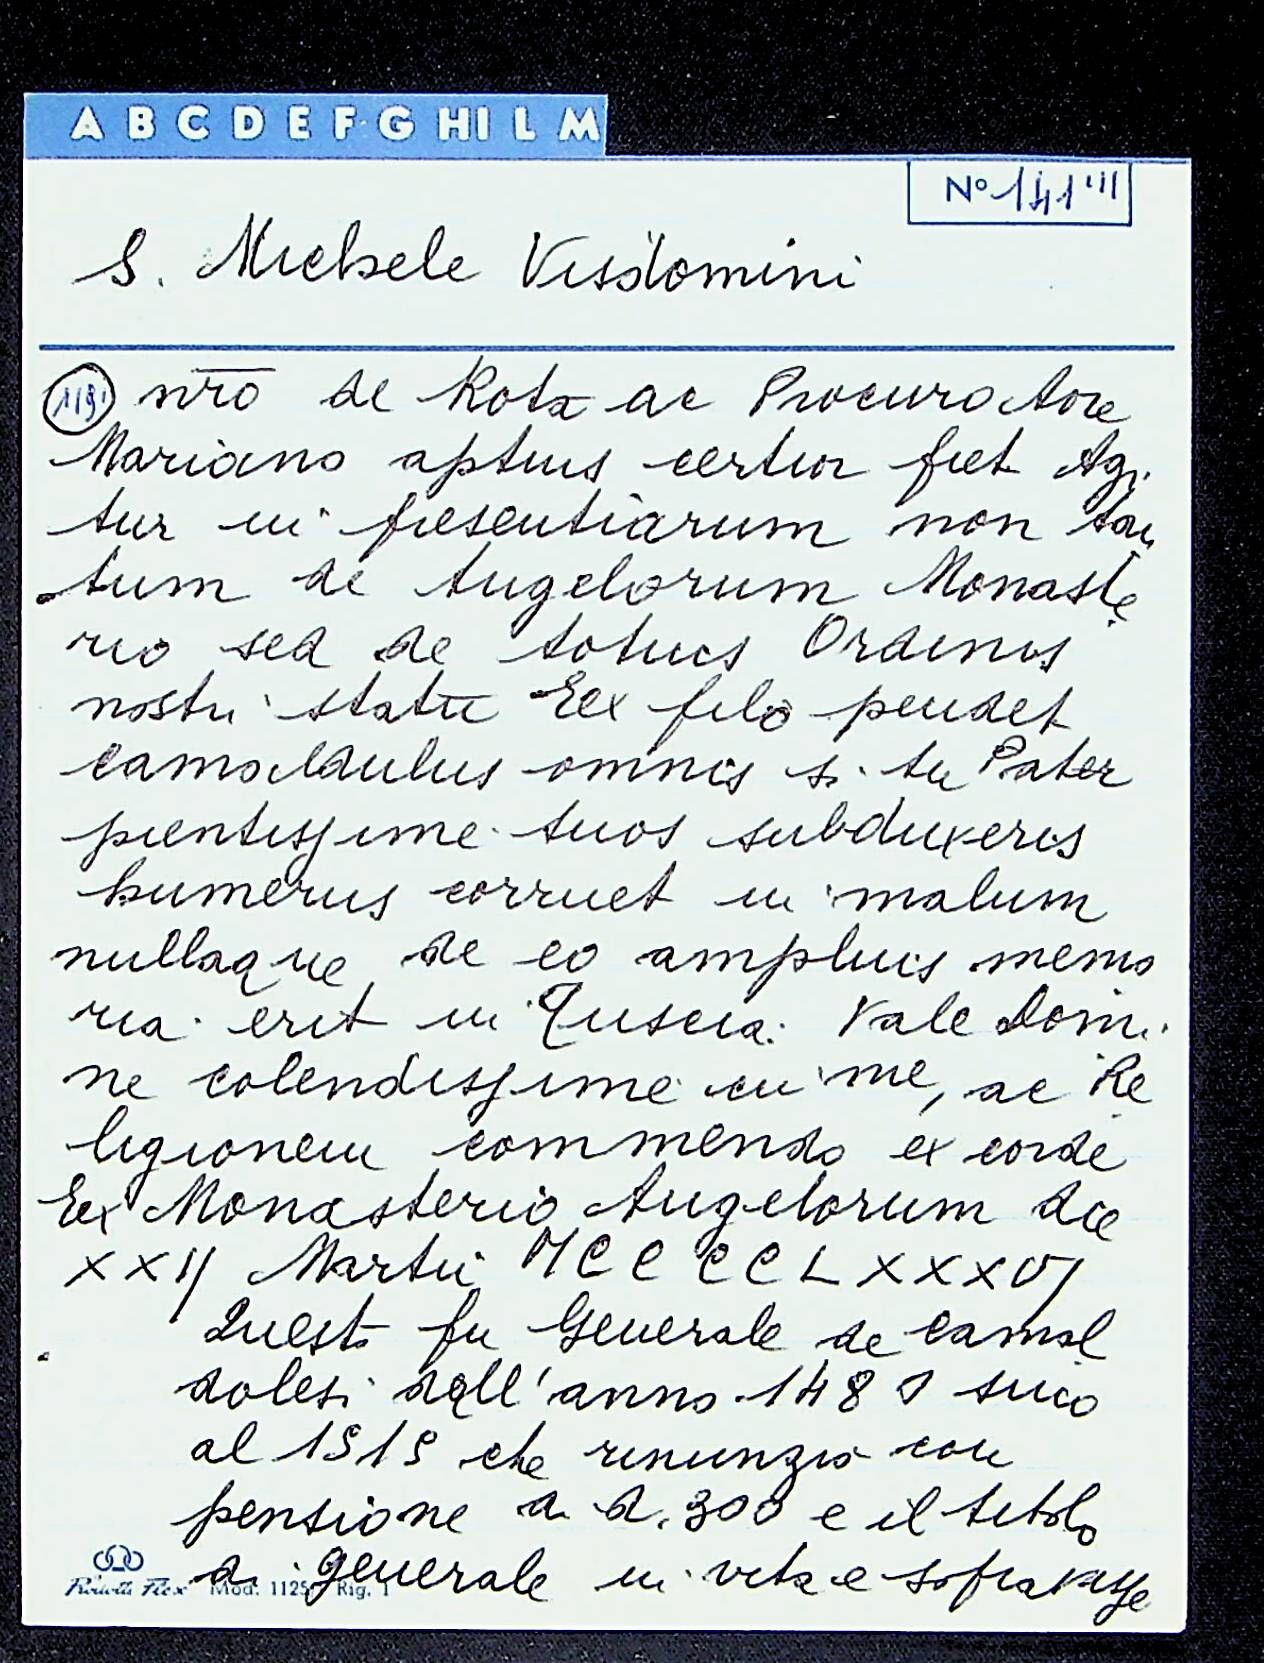 A B C D E F G HI L M
Nº 141 III
S. Michele Visdomini
1191 nr̅o de Rota ac Procuratore
Mariano aptius certior fiet Agi
tur in presentiarum non tan
tum de Angelorum Monaste
rio sed de totius Ordinis
nostri statu̅ Ex filo pendet
camaldulus omnis si tu Pater
pientissime tuos subduxeris
humerus corruet in malum
nullaque de eo amplius memo
ria erit in Tuscia. Vale Domi
ne colendissime cui me, ac Re
ligionem commendo ex corde
Ex Monasterio Angelorum die
XXIJ Martii MCCCCLXXXVJ
Questo fu Generale de Camal
dolesi dall'anno 148 sino
al 1515 che rinunziò con
pensione di d. 300 e il titolo
di generale in vita e sopravisse
Mod. 1125 Rig. 1